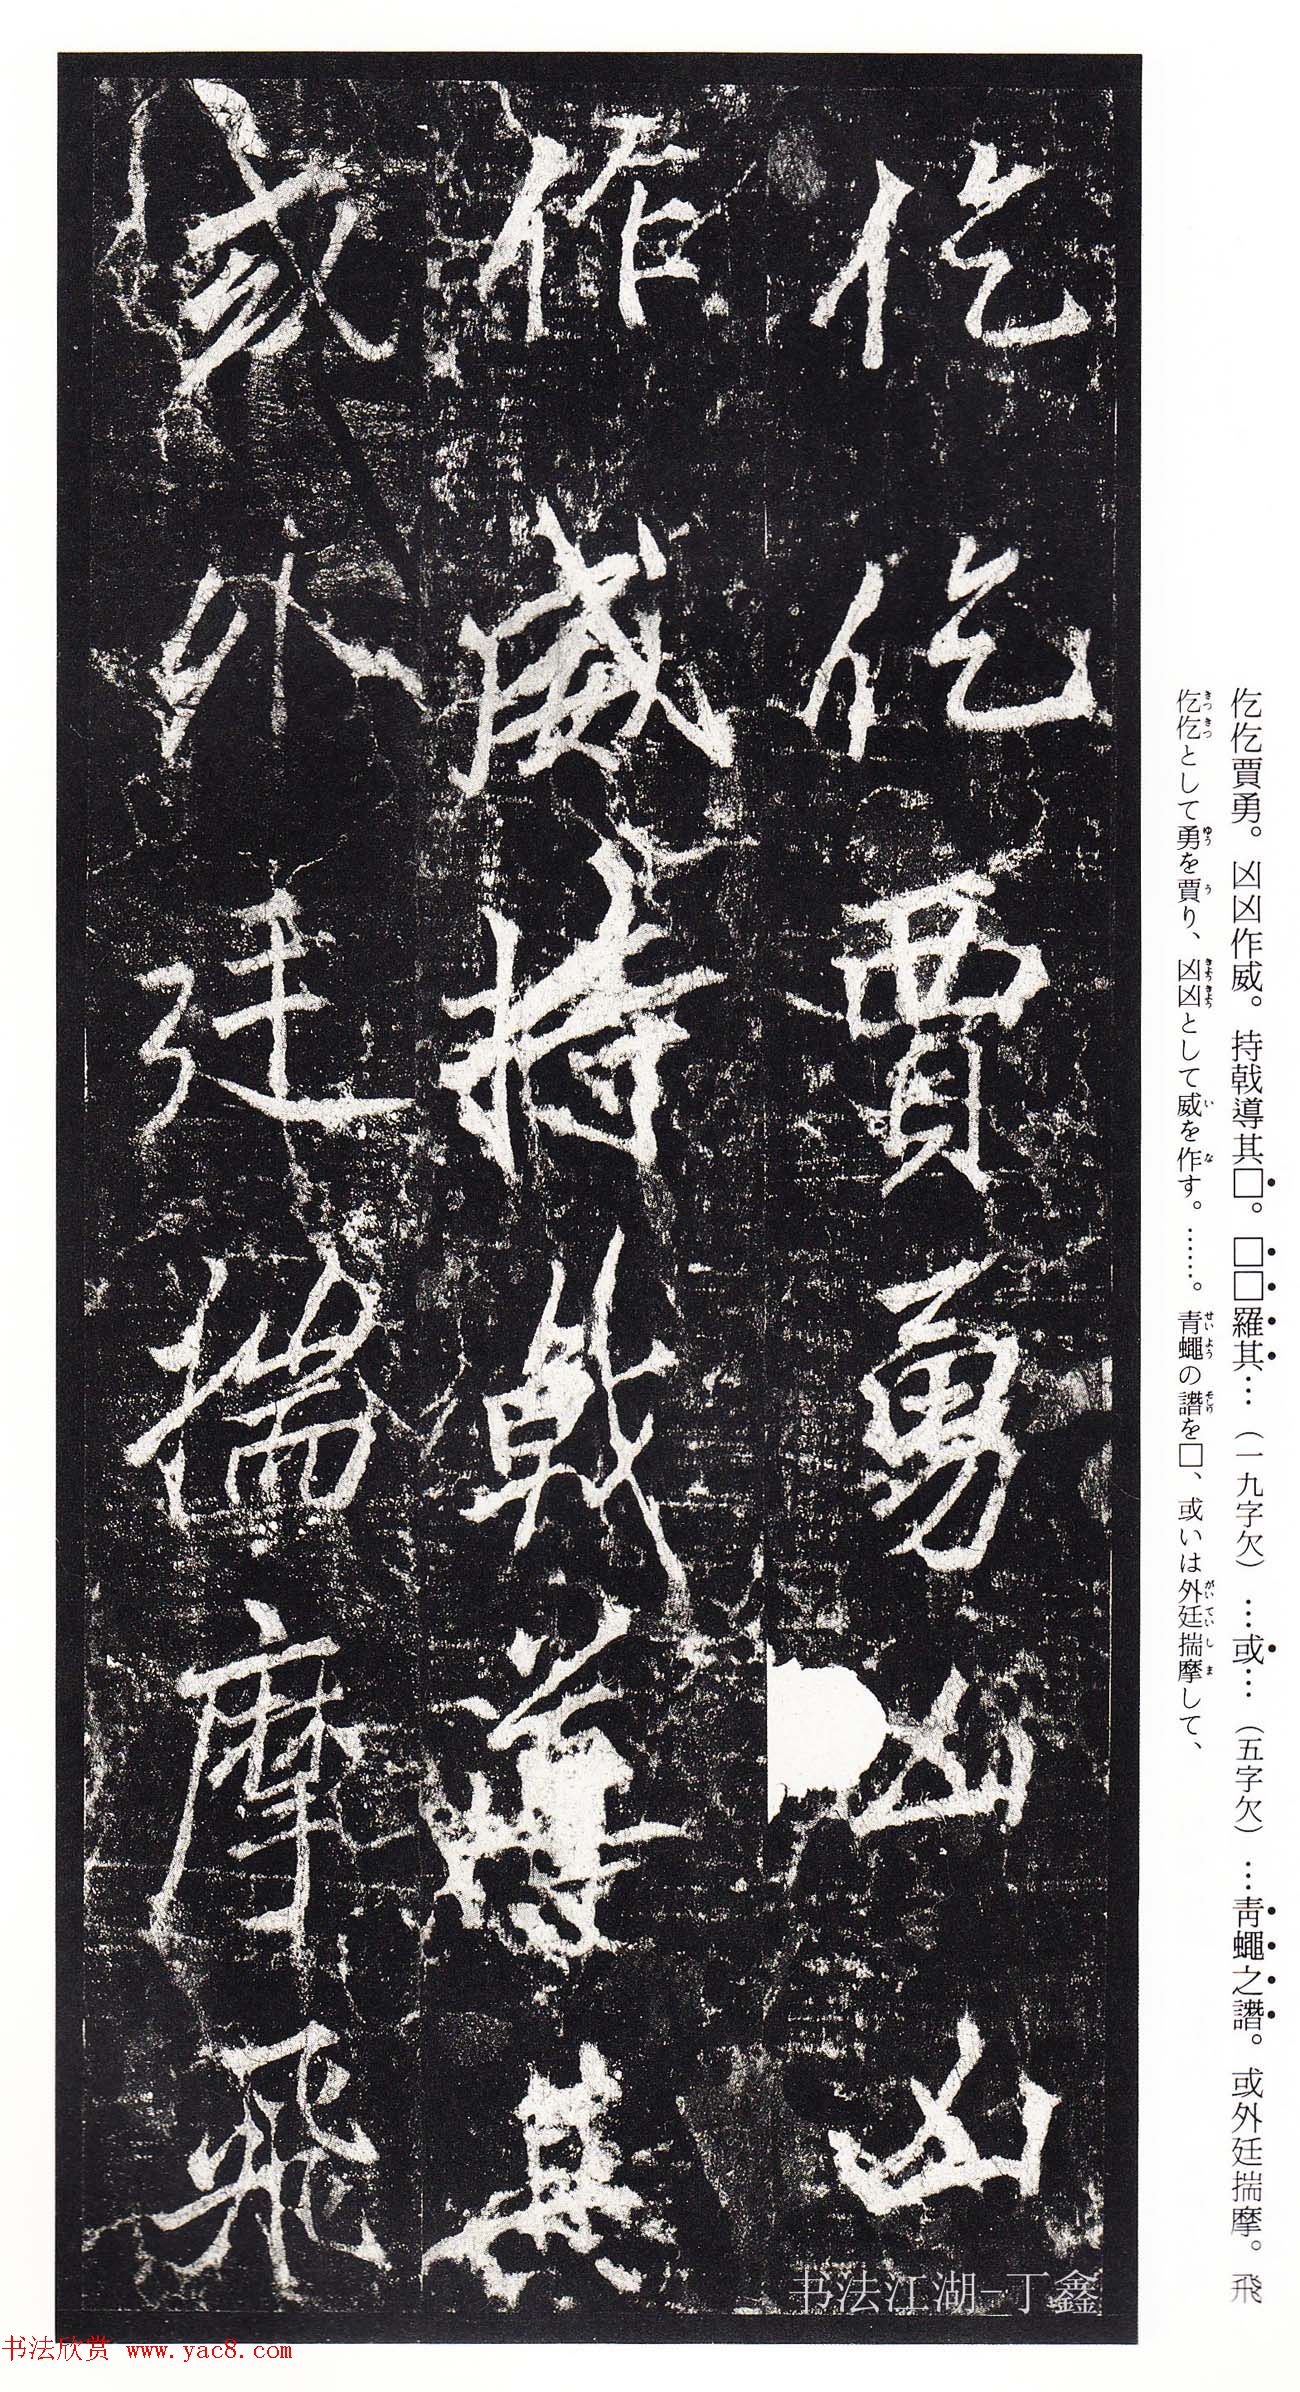 仡仡賈勇。凶凶作威。持戟導其□。□□羅其…（一九字欠）…或…（五字欠）…靑蠅之譖。或外廷揣摩。飛
仡仡として勇を賈り、凶凶として威を作す。……。青蠅の譖を□、或いは外廷揣摩して、
仡仡賈勇凶凶
作威持戟導其
或外廷揣摩飛
书法江湖-丁鑫
书法欣赏 www.yac8.com